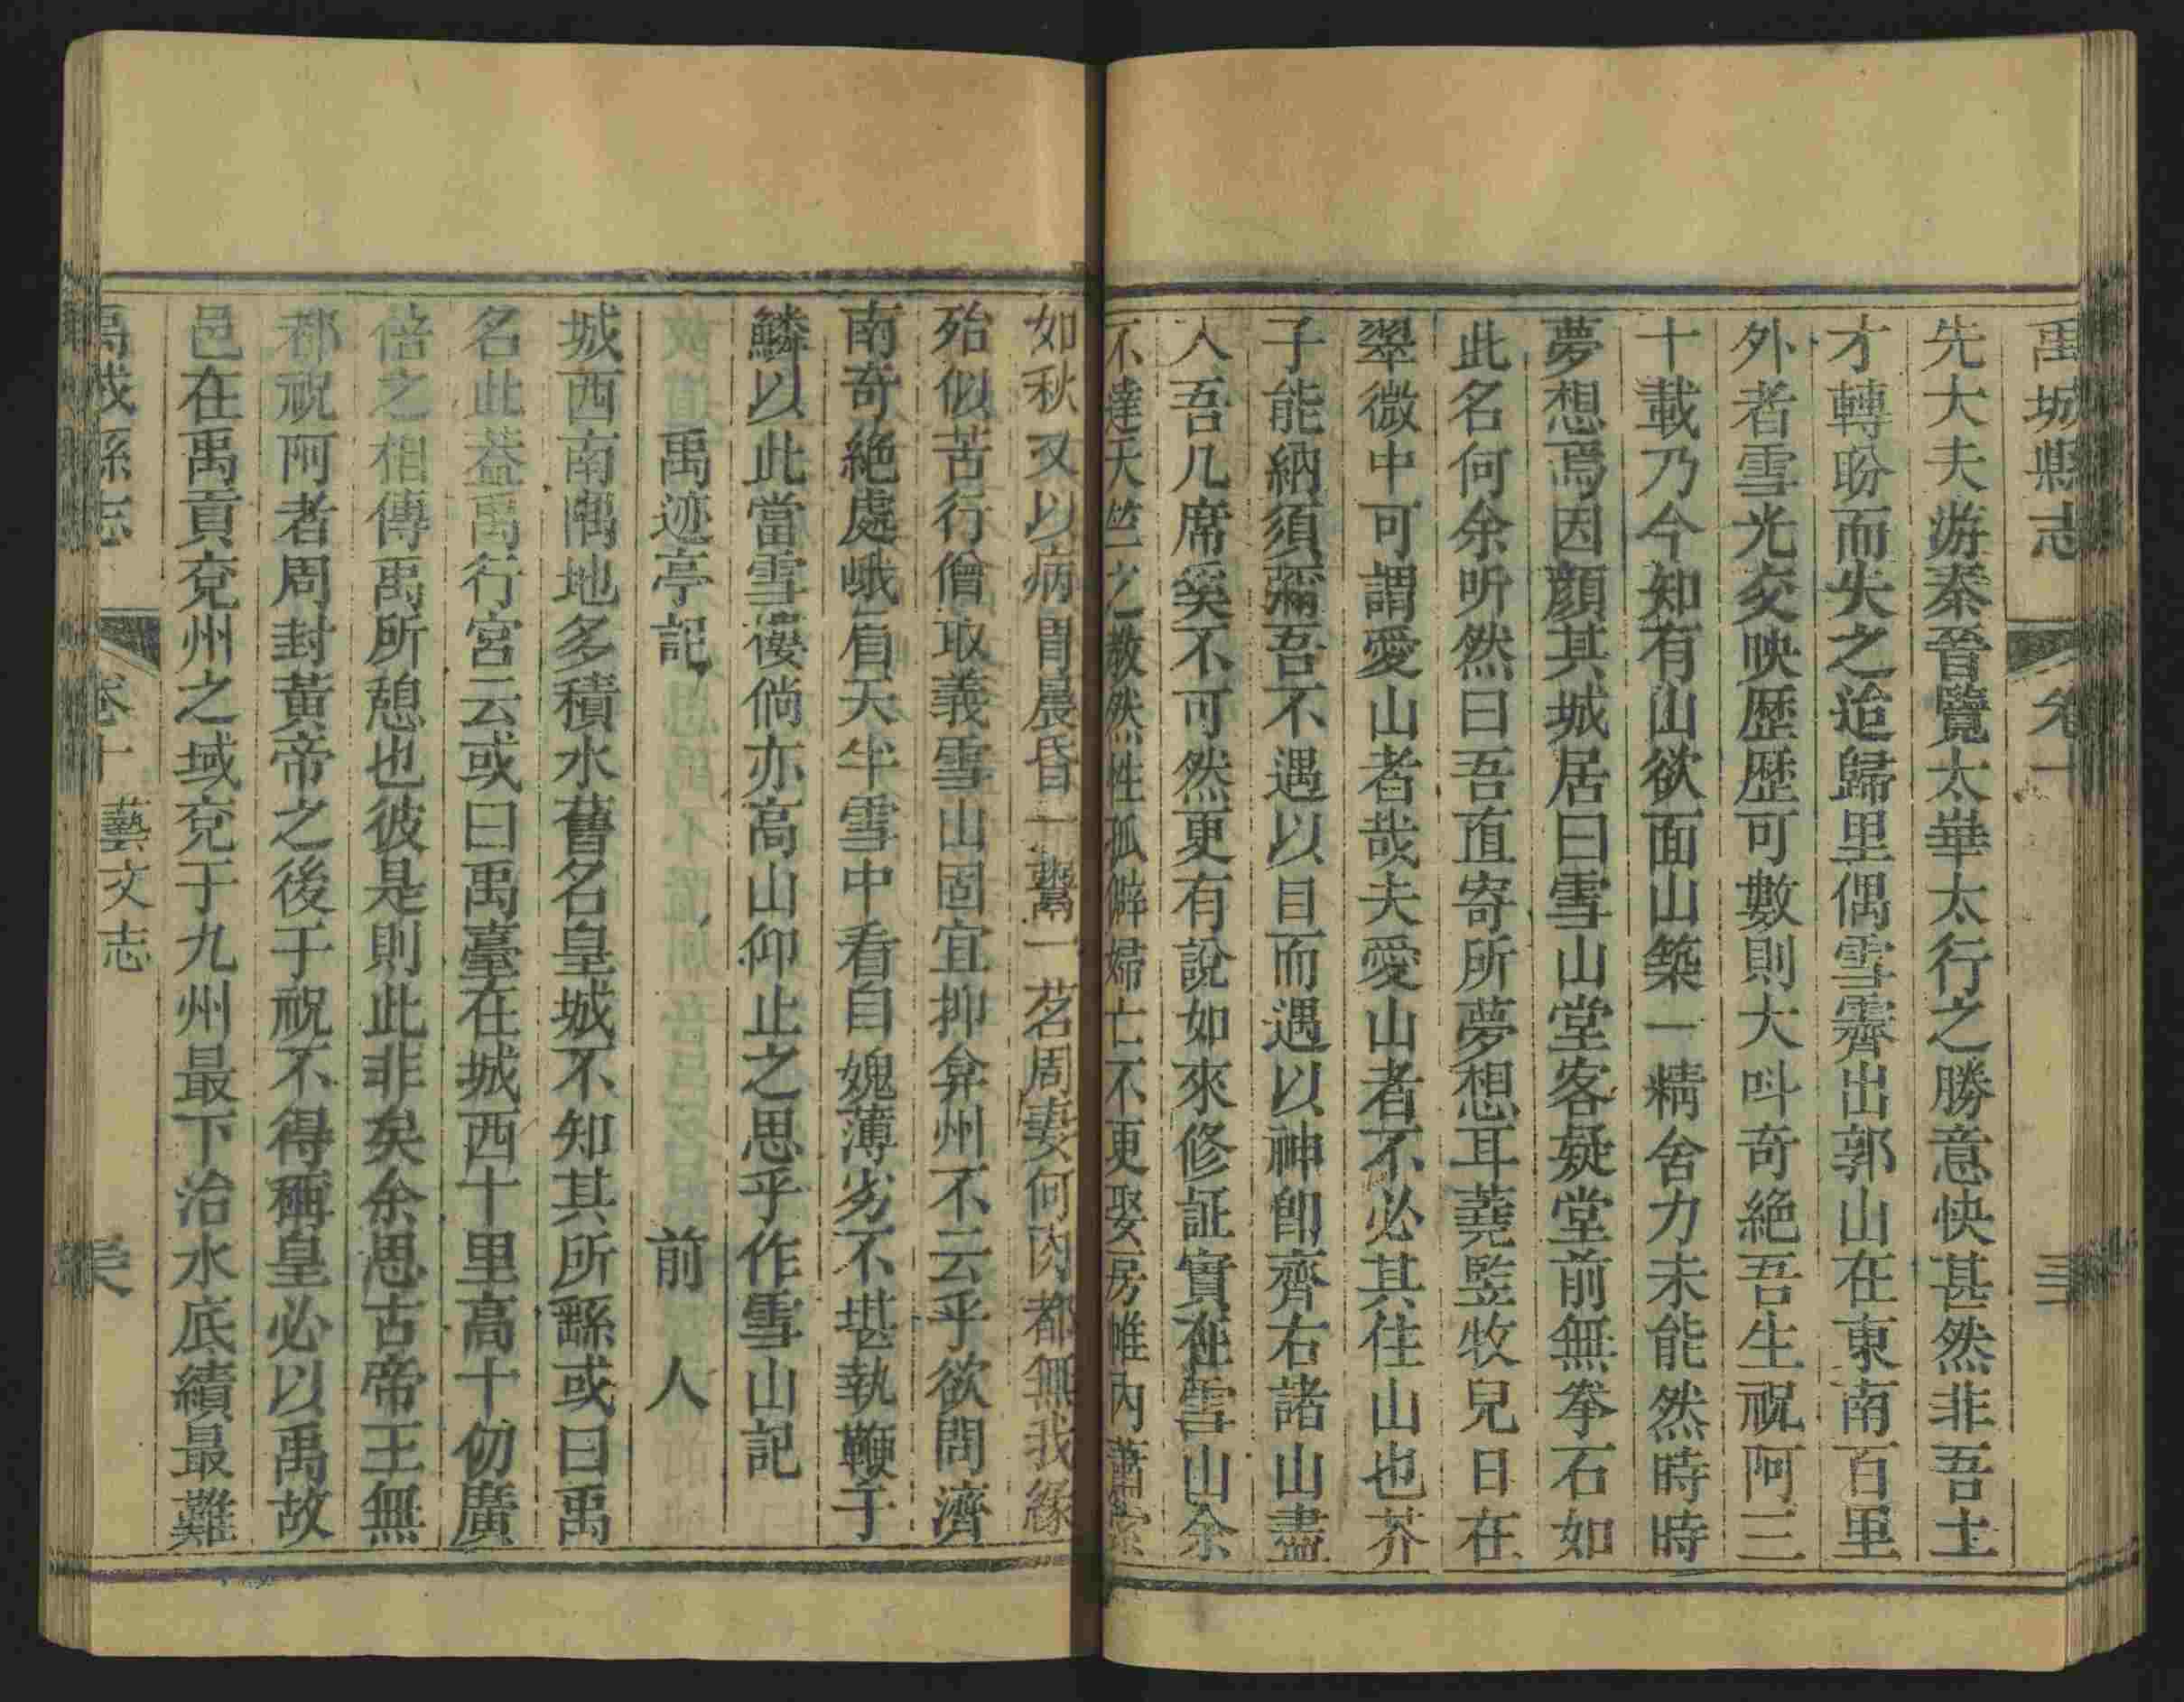 禹城縣志 卷十
先大夫游秦晉覽太華太行之勝意快甚然非吾土
才轉盼而失之迨歸里偶雪霽出郭山在東南百里
外者雪光交映歷歷可數則大呌奇絶吾生祝阿三
十載乃今知有山欲面山築一精舍力未能然時時
夢想焉因顔其城居曰雪山堂客疑堂前無拳石如
此名何余听然曰吾直寄所夢想耳蕘監牧兒日在
翠微中可謂愛山者哉夫愛山者不必其住山也芥
子能納須彌吾不遇以目而遇以神卽齊右諸山盡
入吾几席奚不可然更有說如來修証實在雪山余
不達天竺之教然性孤僻婦亡不更娶房帷內蕭索
如秋又以病胃晨昏一鬻一茗周妻何肉都無我緣
殆似苦行僧取義雪山固宜抑弇州不云乎欲問濟
南奇絶處峨眉天半雪中看自媿薄劣不堪執鞭于
鱗以此當雪樓倘亦高山仰止之思乎作雪山記
禹迹亭記 前人
城西南隅地多積水舊名皇城不知其所繇或曰禹
名此葢禹行宮云或曰禹臺在城西十里高十仞廣
倍之相傳禹所憩也彼是則此非矣余思古帝王無
都祝阿者周封黃帝之後于祝不得稱皇必以禹故
邑在禹貢兗州之域兗于九州最下治水底績最難
禹城縣志 卷十 藝文志